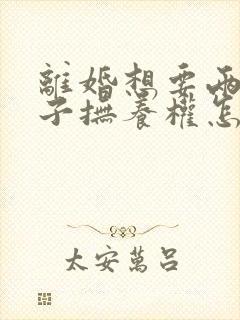 離婚想要兩
子撫養權怎
太安萬呂